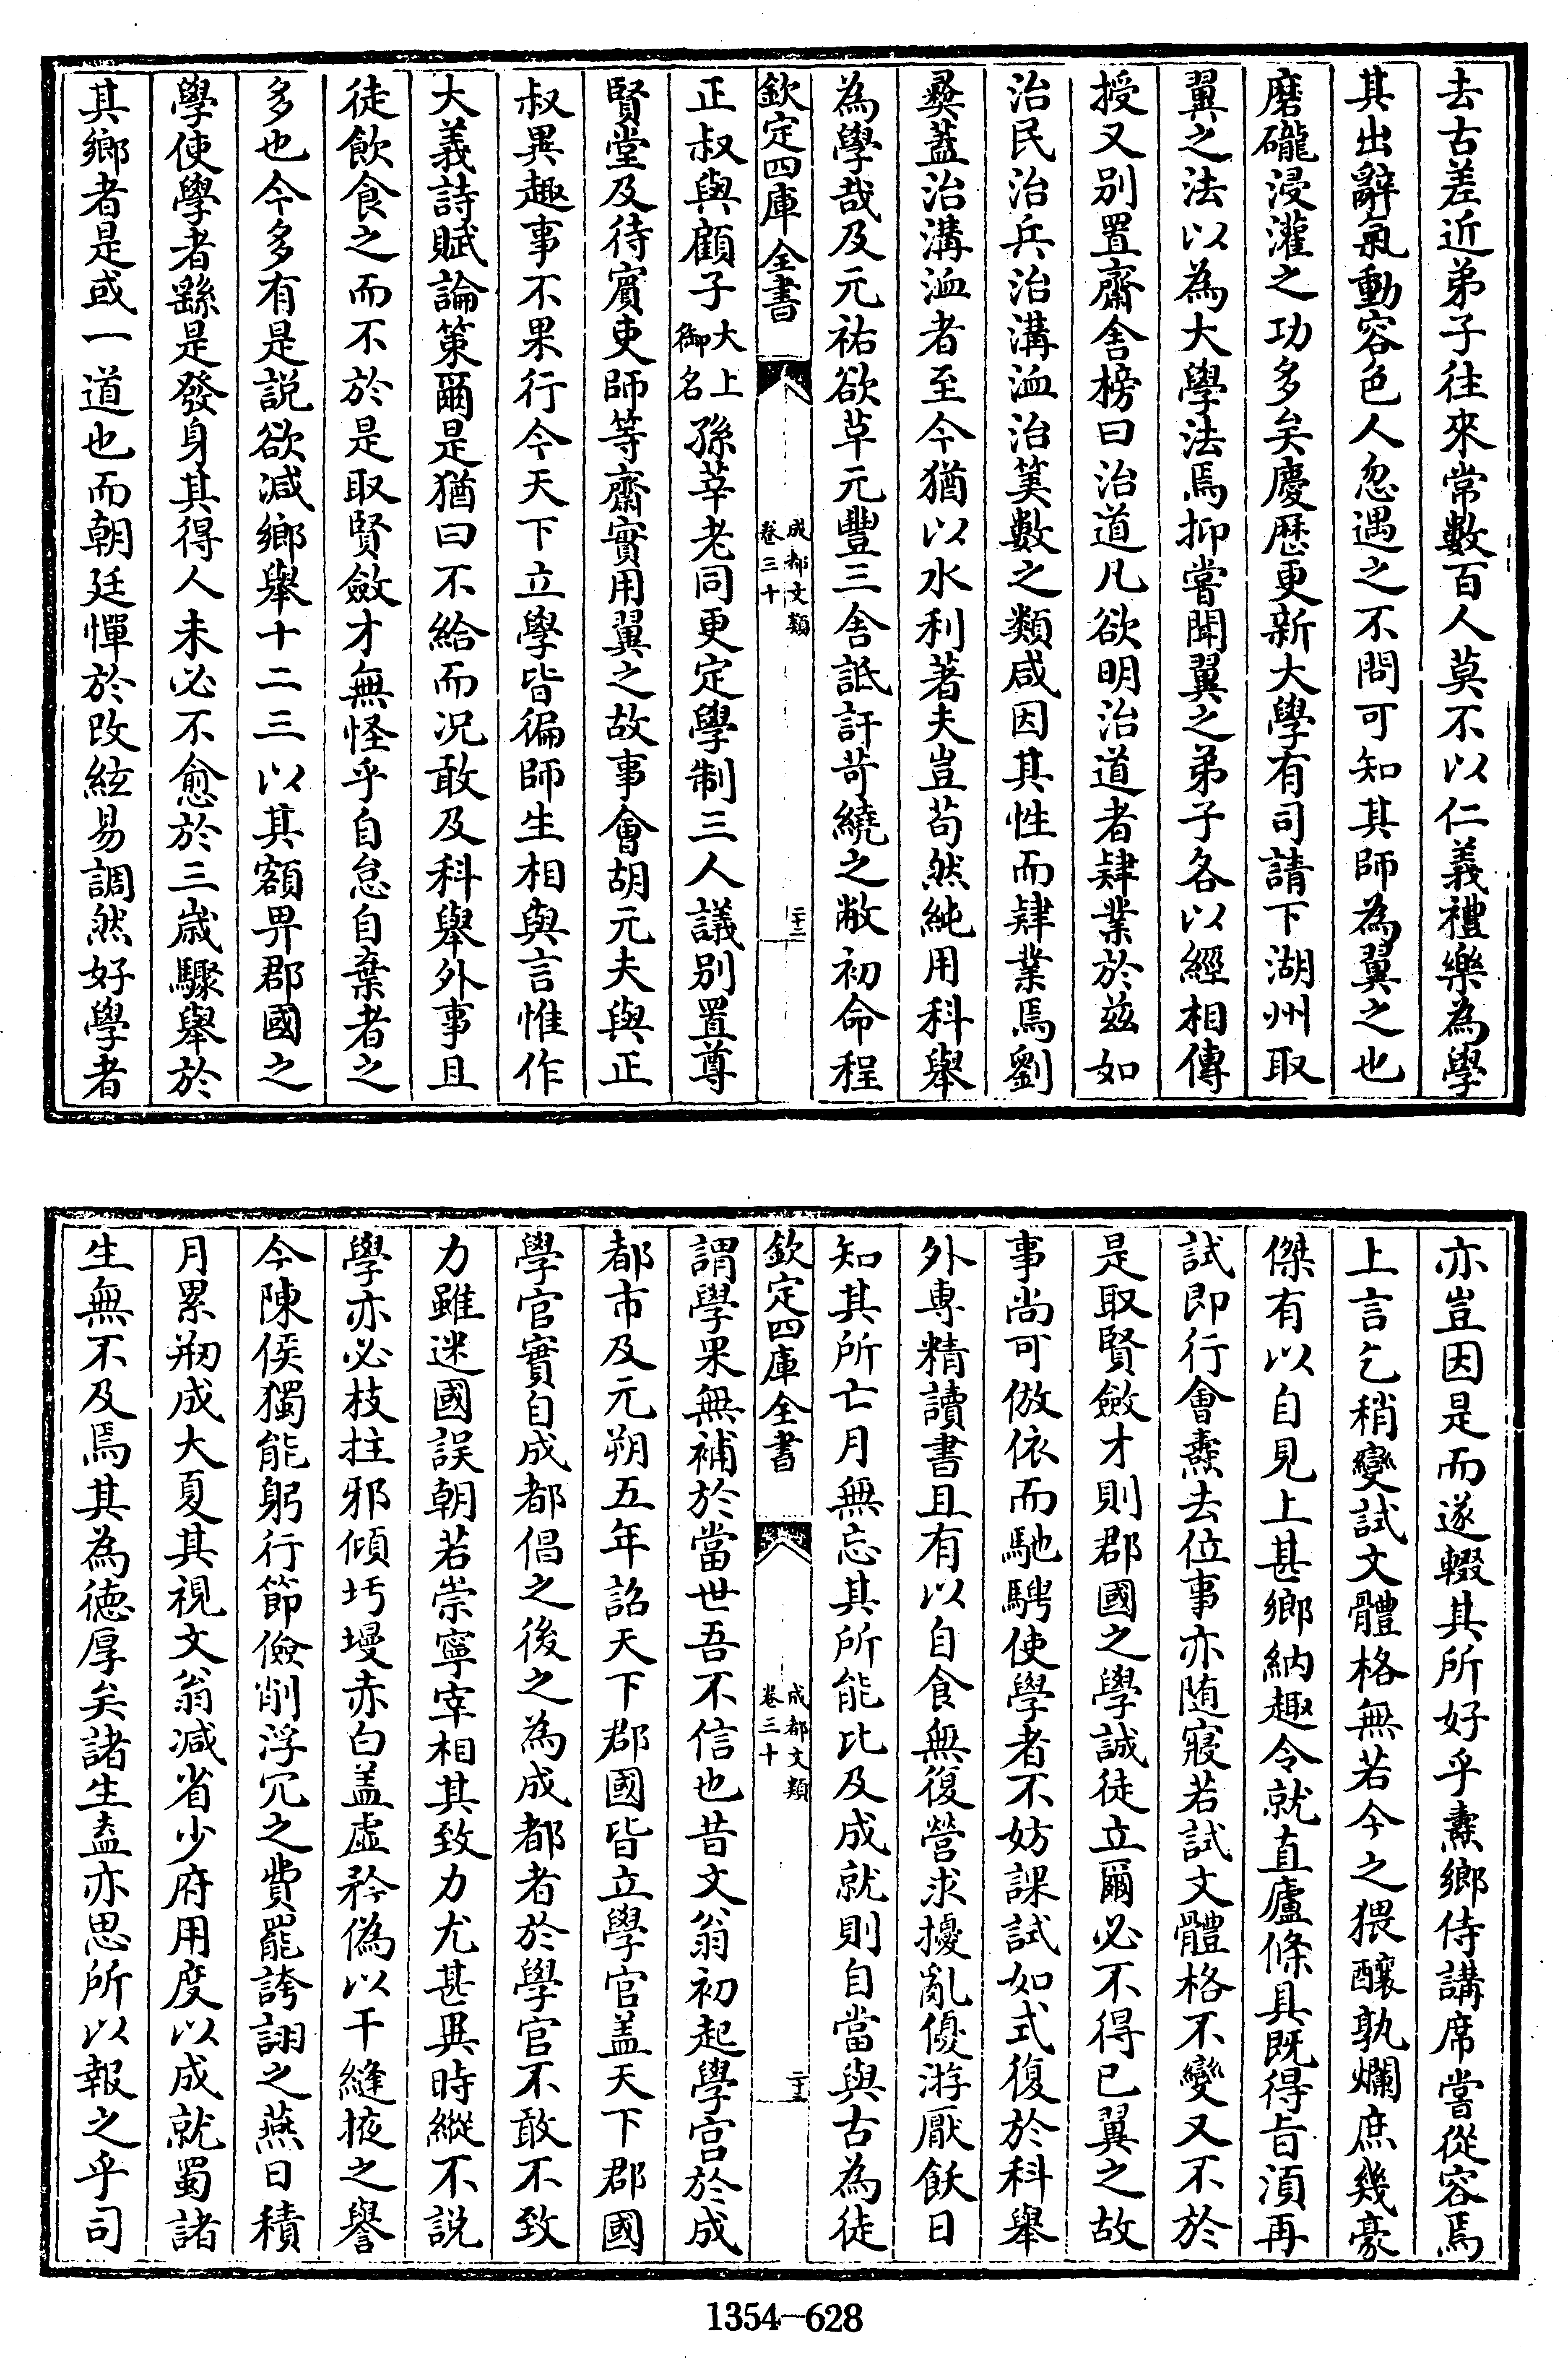 去古差近弟子往來常數百人莫不以仁義禮樂為學
其出辭氣動容色人忽遇之不問可知其師為翼之也
磨礲浸灌之功多矣慶歴更新大學有司請下湖州取
翼之法以為大學法焉抑嘗聞翼之弟子各以經相傳
授又别置齋舍榜曰治道凡欲明治道者肄業於兹如
治民治兵治溝洫治筭數之類咸因其性而肄業焉劉
彛蓋治溝洫者至今猶以水利著夫豈苟然純用科舉
為學哉及元祐欲草元豐三舍詆訐苛繞之敝初命程
欽定四庫全書
成都文類
卷三十
二十二
正叔與顧子大上御名孫莘老同更定學制三人議别置尊
賢堂及待賓吏師等齋實用翼之故事會胡元夫與正
叔異趣事不果行今天下立學皆徧師生相與言惟作
大義詩賦論策爾是猶曰不給而况敢及科舉外事且
徒飲食之而不於是取賢斂才無怪乎自怠自棄者之
多也今多有是説欲减鄉舉十二三以其額畀郡國之
學使學者繇是發身其得人未必不愈於三歳驟舉於
其鄉者是或一道也而朝廷憚於改絃易調然好學者
亦豈因是而遂輟其所好乎燾鄉侍講席嘗從容焉
上言乞稍變試文體格無若今之猥釀孰爛庶幾豪
傑有以自見上甚鄉納趣令就直廬條具既得旨湏再
試即行會燾去位事亦随寢若試文體格不變又不於
是取賢斂才則郡國之學誠徒立爾必不得已翼之故
事尚可倣依而馳騁使學者不妨課試如式復於科舉
外専精讀書且有以自食無復營求擾亂優游厭飫日
知其所亡月無忘其所能比及成就則自當與古為徒
欽定四庫全書
成都文類
卷三十
二十三
謂學果無補於當世吾不信也昔文翁初起學宫於成
都市及元朔五年詔天下郡國皆立學官盖天下郡國
學官實自成都倡之後之為成都者於學官不敢不致
力雖迷國誤朝若崇寧宰相其致力尤甚異時縱不説
學亦必枝拄邪傾圬墁赤白盖虚矜偽以干縫掖之譽
今陳侯獨能躬行節儉削浮冗之費罷誇詡之燕日積
月累刱成大夏其視文翁减省少府用度以成就蜀諸
生無不及焉其為徳厚矣諸生盍亦思所以報之乎司
1354—628